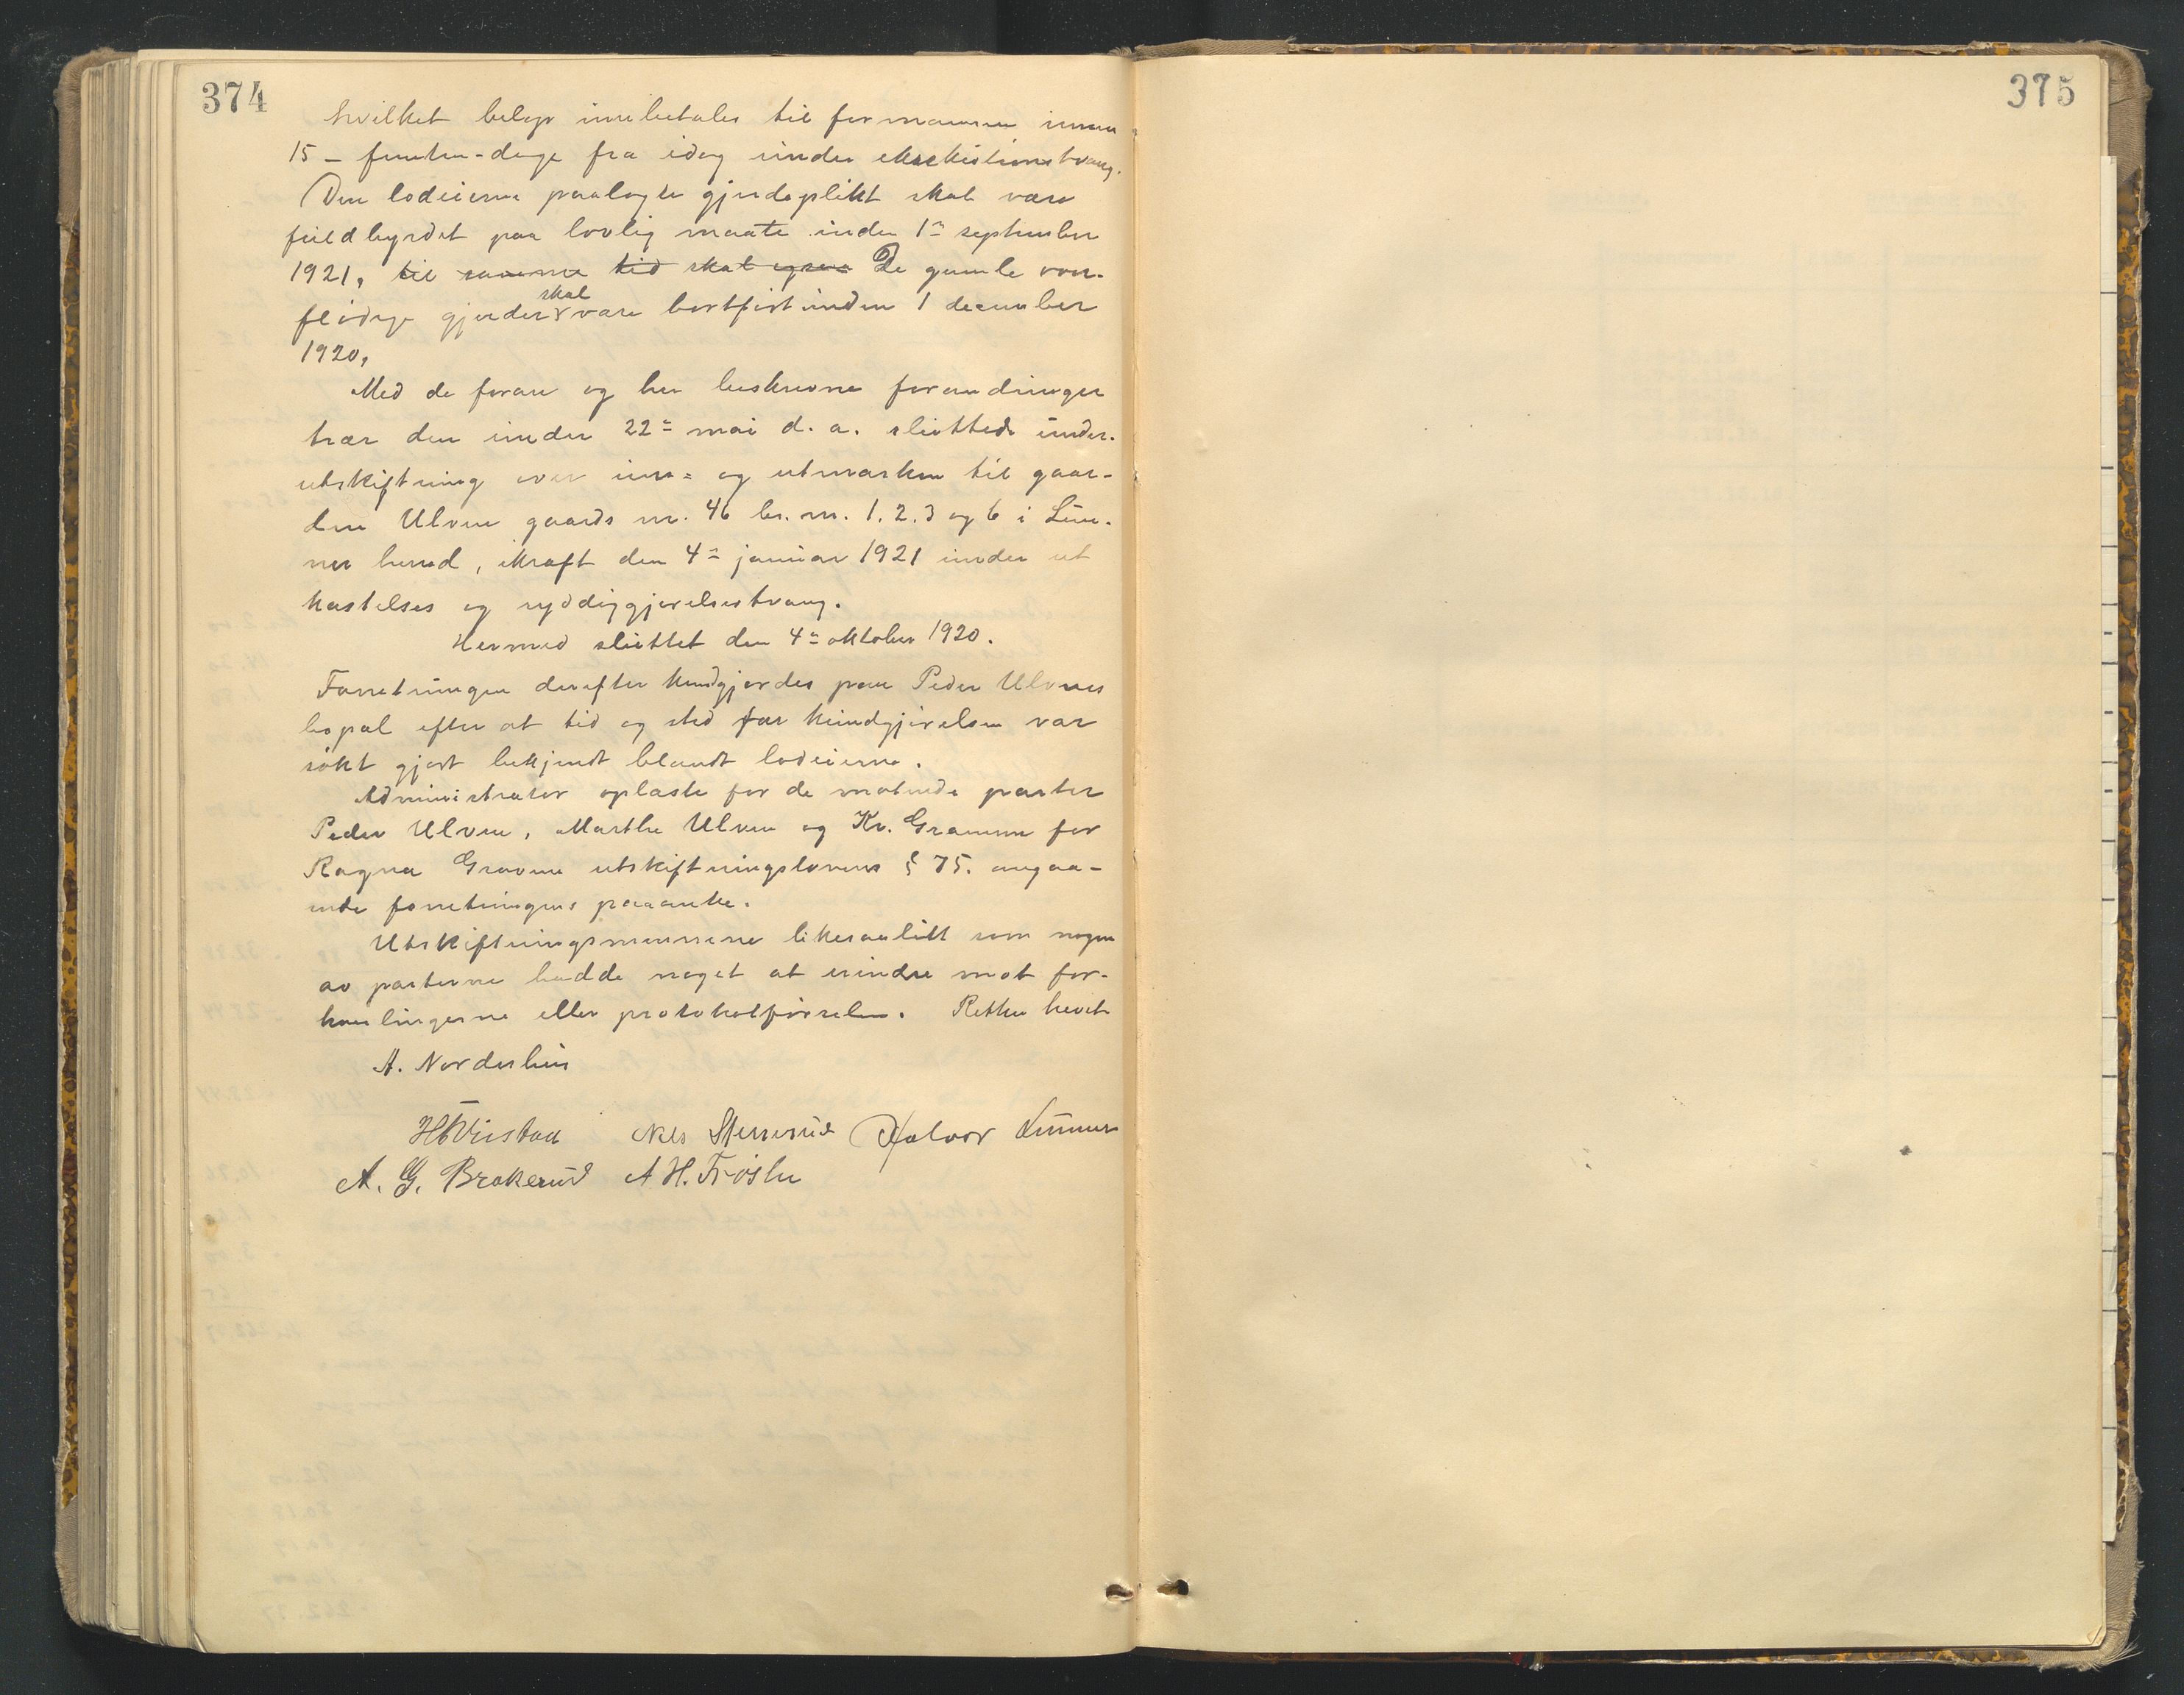 374
hvilket beløp innbetales til formannen innen
15 - femten - dage fra idag under eksekutionstvang.
Den lodeierne paalagte gjerdeplikt skal være
fuldbyrdet paa lovlig maate inden 1ª september
1921, til samme tid skal ogsaa De gamle over-
flødige gjerder skal være bortført inden 1 december
1920,
Med de foran og her beskrevne forandringer
trær den under 22ª mai d. a. sluttede under-
utskiftning over inn- og utmarken til gaar-
den Ulven gaards nr. 46 br. nr. 1. 2. 3 og 6 i Lun-
ner herred, ikraft den 4ª januar 1921 under ut
kastelses og ryddiggjørelsestvang.
Hermed sluttet den 4ª oktober 1920.
Forretningen derefter kundgjordes paa Peder Ulvens
bopæl efter at tid og sted for kundgjørelsen var
søkt gjort bekjendt blandt lodeierne.
Administrator oplæste for de møtende parter
Peder Ulven, Marthe Ulven og Kr. Gramm for
Ragna Gravem utskiftningslovens § 75. angaa-
ende forretningens paaanke.
Utskiftningsmennene likesaalitt som nogen
av parterne hadde noget at erindre mot for-
handlingerne eller protokolførselen. Retten hevet
A. Norderhus
Nels Stensrud Halvor Lunner
A. G. Brakerud A H. Frøslie
375